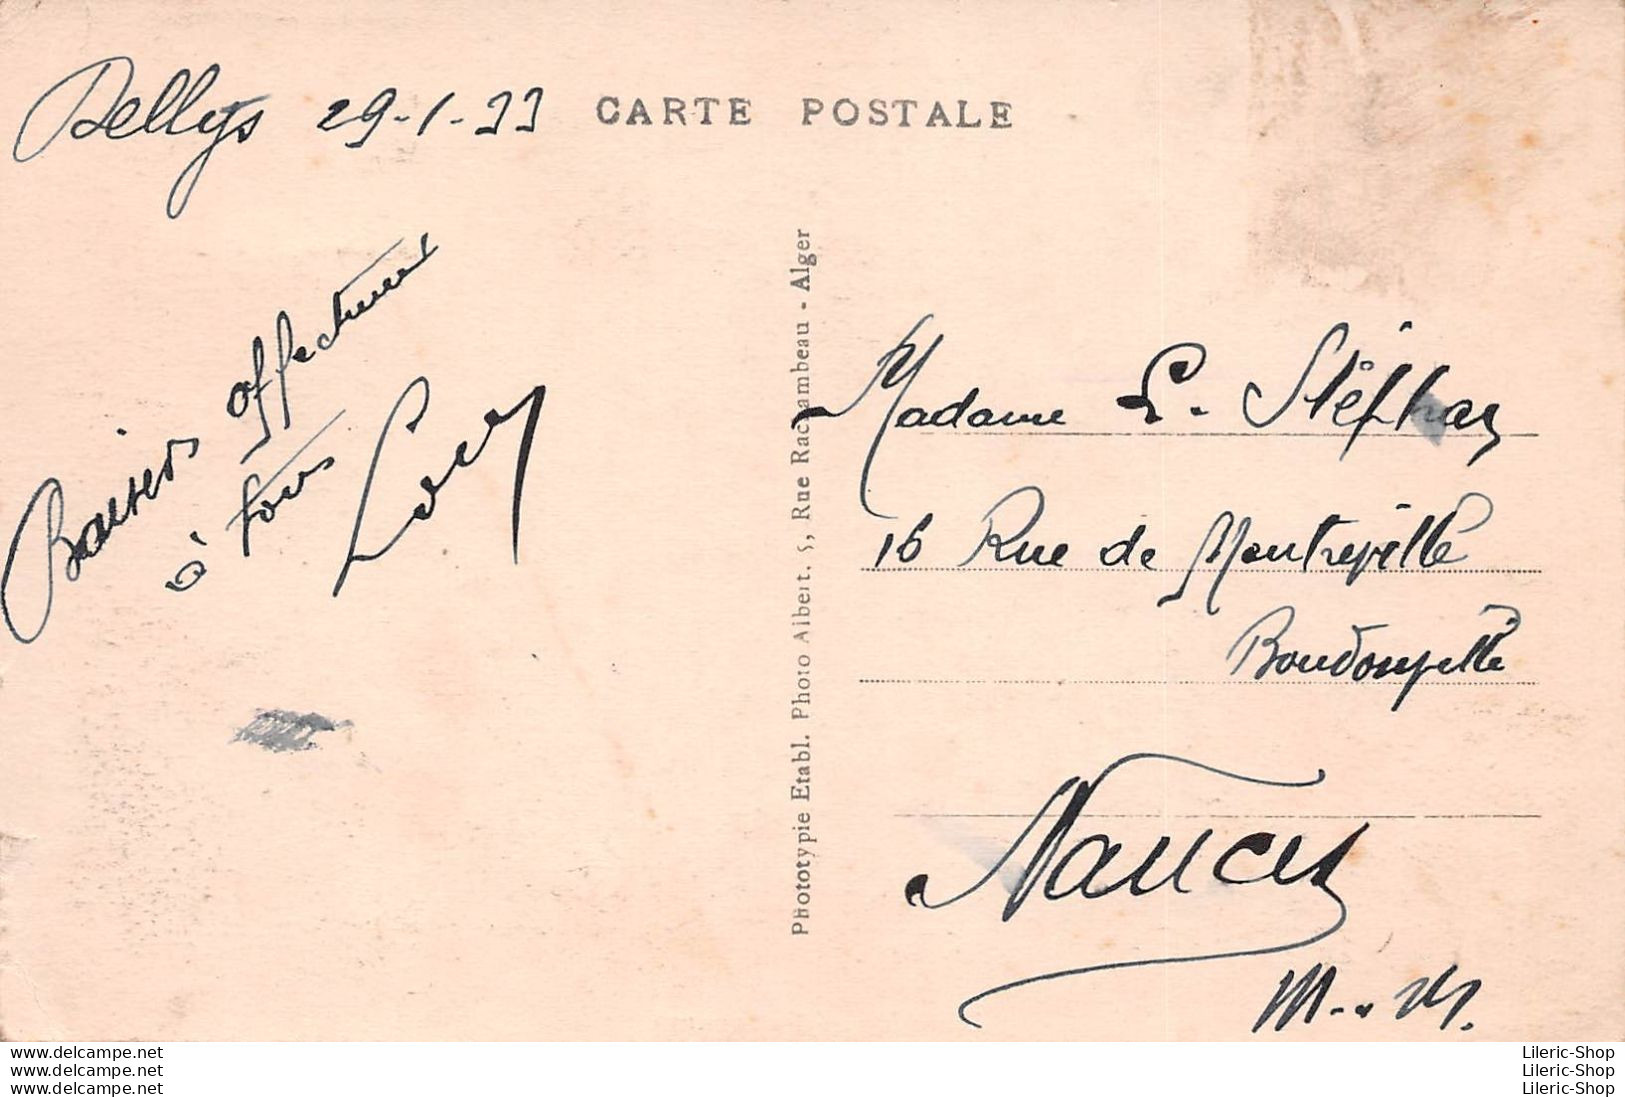 Dellys 29-1-33
CARTE POSTALE
Baisers affectueux
à tous
Phototypie Etabl. Photo Albert, 5, Rue Racsambeau - Alger
Madame L. Stéphan
16 Rue de Montreville
Boudonville
Nancy
M.-M.
www.delcampe.net
www.delcampe.net
www.delcampe.net
Lileric-Shop
Lileric-Shop
Lileric-Shop